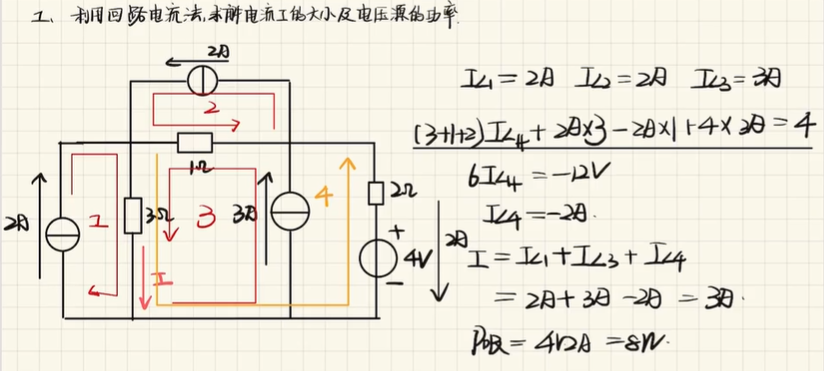 1、利用回路电流法,求解电流I的大小及电压源的功率
2A
2
1Ω
2A
1
3Ω
3
3A
4
2Ω
I
+
4V
-
2A
IL1 = 2A IL2 = 2A IL3 = 3A
(3+1+2)IL4 + 2A×3 - 2A×1+4× 3A = 4
6IL4 = -12V
IL4 = -2A.
I = IL1 + IL3 + IL4
= 2A + 3A - 2A = 3A.
P吸 = 4V2A = 8W.